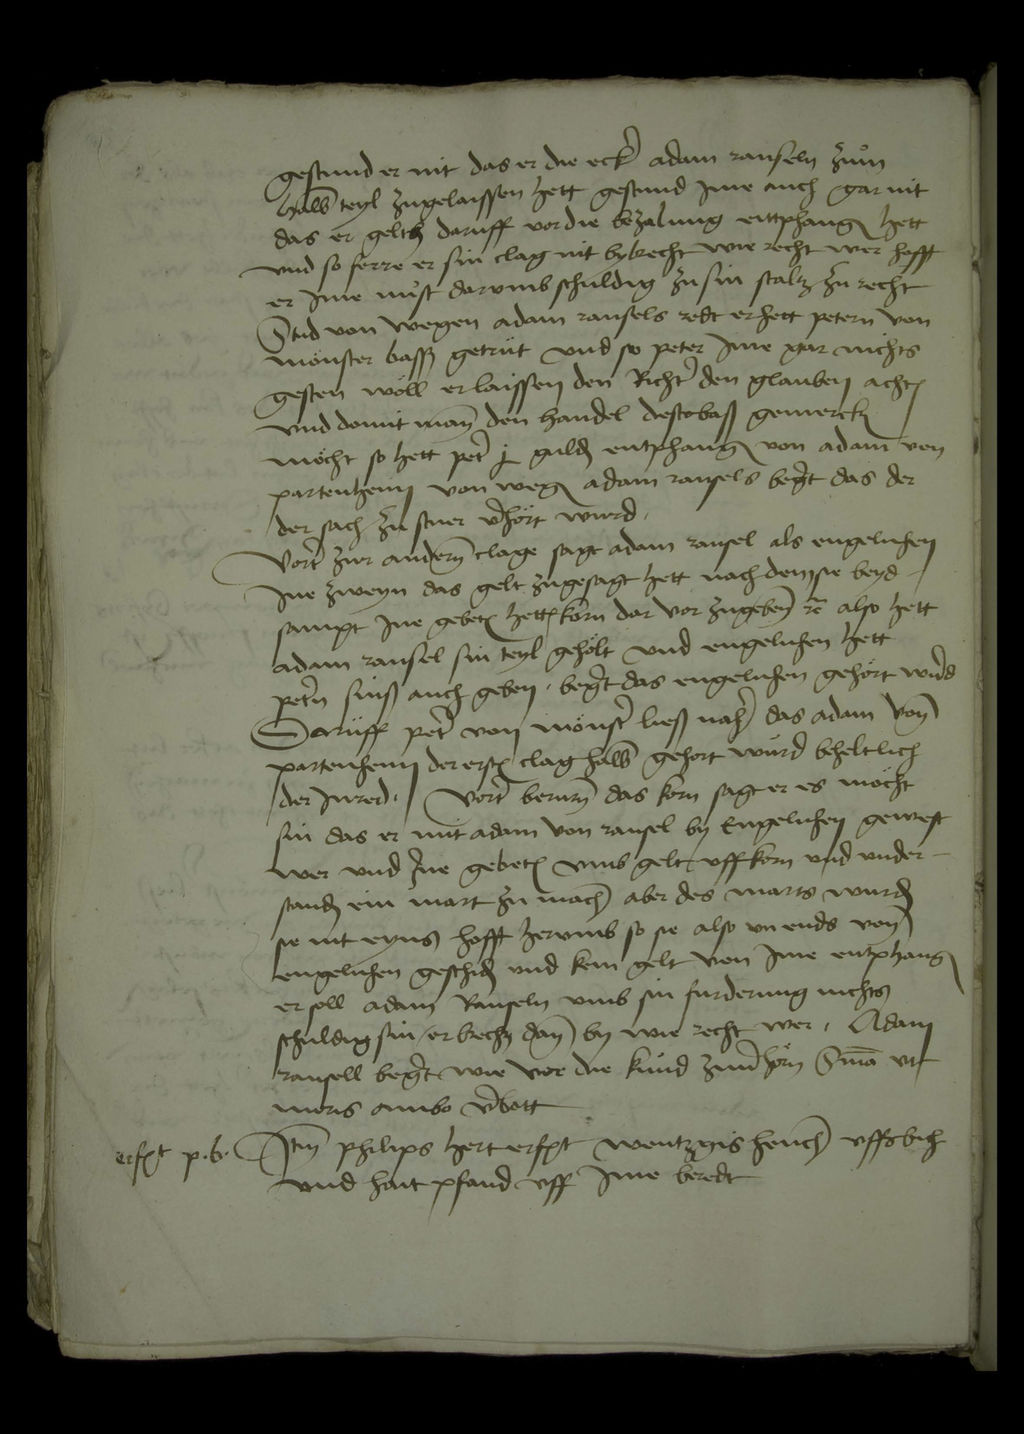 gestund er nit das er die eck adam ranseln zům
halb teyl zugelaissen hett gestund Ime auch gar nit
das er geltz daruff vor die bezalung entphang hett
vnd so ferre er sin clag nit bybrecht wie recht wer hofft
er Ime nust darumb schuldig zu sin staltz zu recht
Stud von wegen adam ransels redt er hett petern von
mönster bass getrut vnd so peter Ime gar nichts
gesten wöll er laissen den Richt den glauben acht
vnd domit man den handel destobaß gemerck
möcht so hett pet j guld entphang von adam von
partenheim von weg adam ransels begt das der
der sach zu stuer vhört wurd
Vort zur andern clage sagt adam ransel als engelnhen
Ine zweyn das gelt zugesagt hett nach dem sie beyd
sampt Ine gebet hett korn dar vor zugeben rc also hett
adam ransel sin teyl geholt vnd engelnhen hett
petn sinß auch geben . begt das engelnhen gehört wurd
Daruff pet von mönst ließ nah das adam von
partenhem der erst clag halb gehort wurd beheltlich
der Inred . Vort berurn das korn sagt er es möcht
sin das er mit adam von ransel by Engelnhen gewest
wer vnd Ine gebet vmb gelt vff korn vnd vnder
stand ein mart zu mach aber des marts wurd
sie nit eyns hofft herumb so sie also vn ends von
engelnhen geschid vnd kein gelt von Ime entphang
er soll adam Ranseln vmb sin furderung nichts
schuldig sin er brecht dan by wie recht wer . Adam
ransell begt wie vor die kund zuvhörn vt
moris ambo vbott
erfxt p. b. Itm philips hert erfxt wentzgis hench vff
vnd hait pfand vff Ime beredt